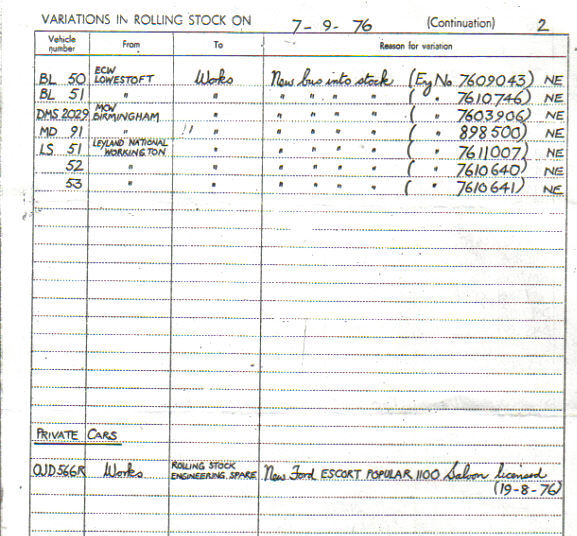 VARIATIONS IN ROLLING STOCK ON 7-9-76 (Continuation) 2
Vehicle number From To Reason for variation
BL 50 ECW LOWESTOFT Works New bus into stock (Eng No. 7609043) NE
BL 51 " " " " " " ( " 7610746) NE
DMS 2029 MCW BIRMINGHAM " " " " " ( " 7603906) NE
MD 91 " " " " " " ( " 898500) NE
LS 51 LEYLAND NATIONAL WORKINGTON " " " " " ( " 7611007) NE
52 " " " " " " ( " 7610640) NE
53 " " " " " " ( " 7610641) NE
PRIVATE CARS
OJD566R Works ROLLING STOCK ENGINEERING SPARE New Ford ESCORT POPULAR 1100 Saloon licensed
(19-8-76)